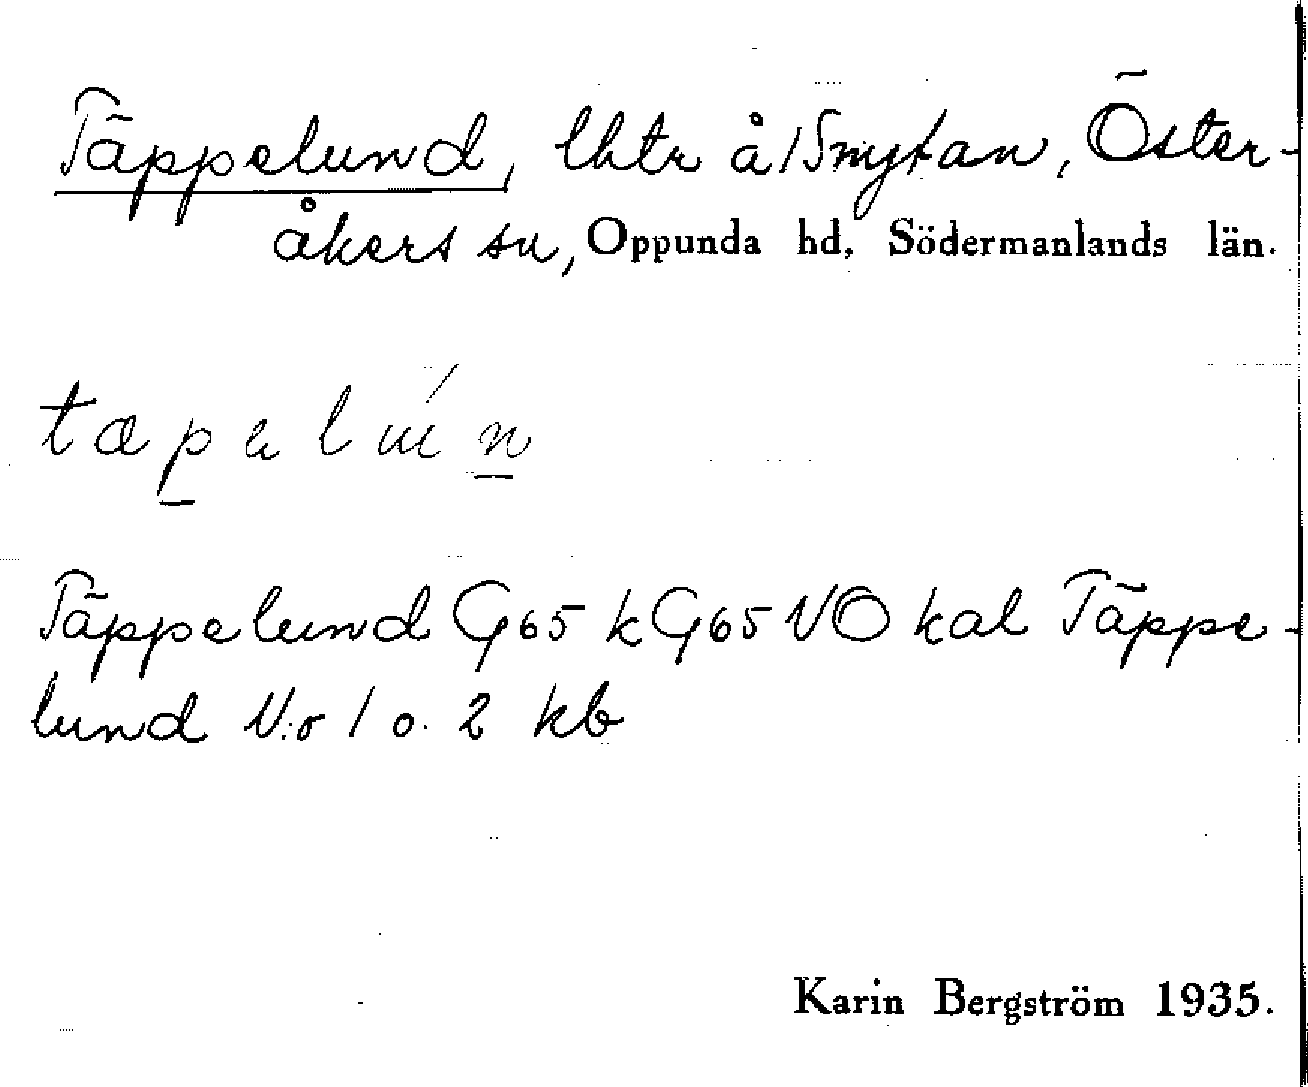 Täppelund, lhtr å /Smytan, Öster-
åkers sn, Oppunda hd, Södermanlands län.
tæpelún
Täppelund G65 kG65 VÖ kal Täppe-
lund N:o 1 o. 2 kb
Karin Bergström 1935.